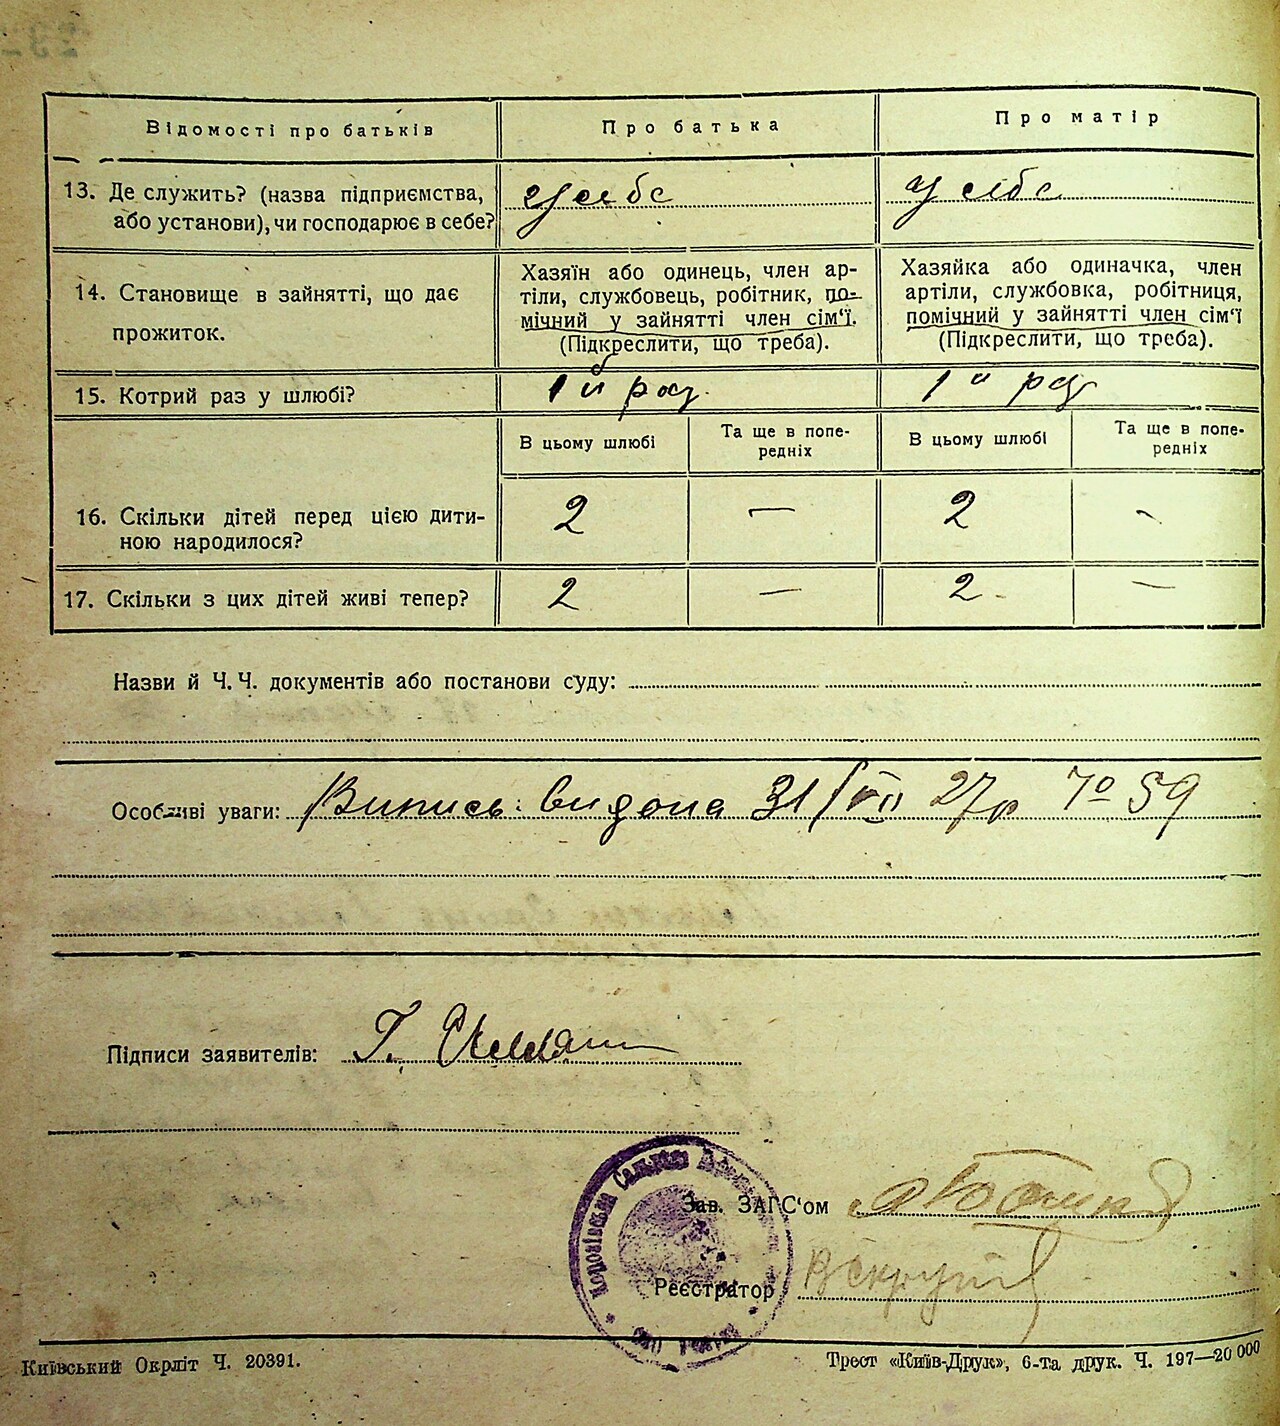 Відомості про батьків
Про батька
Про матір
13. Де служить? (назва підприємства, або установи), чи господарює в себе?
у себе
у себе
14. Становище в зайнятті, що дає прожиток.
Хазяїн або одинець, член ар-
тіли, службовець, робітник, по-
мічний у зайнятті член сім‘ї.
(Підкреслити, що треба).
Хазяйка або одиначка, член
артіли, службовка, робітниця,
помічний у зайнятті член сім‘ї
(Підкреслити, що треба).
15. Котрий раз у шлюбі?
1й раз
1й раз
В цьому шлюбі
Та ще в попе-
редніх
В цьому шлюбі
Та ще в попе-
редніх
16. Скільки дітей перед цією дити-
ною народилося?
2 — 2 -
17. Скільки з цих дітей живі тепер?
2 — 2 —
Назви й Ч. Ч. документів або постанови суду:
Особливі уваги: Випись видана 31/VII 27р № 59
Підписи заявителів: Г.
Зав. ЗАГС‘ом
Реєстратор
Київський Окрліт Ч. 20391.
Трест «Київ-Друк», 6-та друк. Ч. 197—20 000